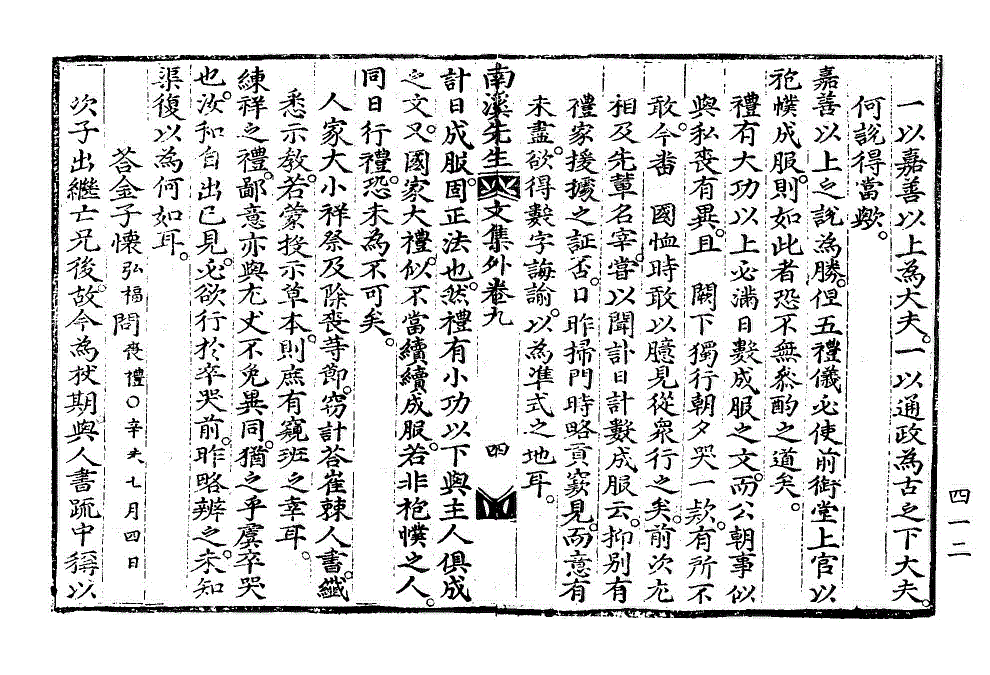 一以嘉善以上爲大夫。一以通政爲古之下大夫。
何說得當歟。
嘉善以上之說爲勝。但五禮儀必使前銜堂上官以
袍幞成服。則如此者恐不無參酌之道矣。
禮有大功以上必滿日數成服之文。而公朝事似
與私喪有異。且 闕下獨行朝夕哭一款。有所不
敢。今番 國恤時敢以臆見從衆行之矣。前次尤
相及先輩名宰。嘗以聞訃日計數成服云。抑別有
禮家援據之証否。日昨掃門時略貢窾見。而意有
未盡。欲得數字誨諭。以爲準式之地耳。
南溪先生文集外卷九 四
計日成服。固正法也。然禮有小功以下與主人俱成
之文。又國家大禮。似不當續續成服。若非袍幞之人。
同日行禮。恐未爲不可矣。
人家大小祥祭及除喪等節。窃計答崔棘人書。纖
悉示敎。若蒙投示草本。則庶有窺班之幸耳。
練祥之禮。鄙意亦與尤丈不免異同。猶之乎虞卒哭
也。汝和自出己見。必欲行於卒哭前。昨略辨之。未知
渠復以爲何如耳。
答金子懷弘福問喪禮○辛未七月四日
次子出繼亡兄後。故今爲杖期。與人書疏中稱以
四一二